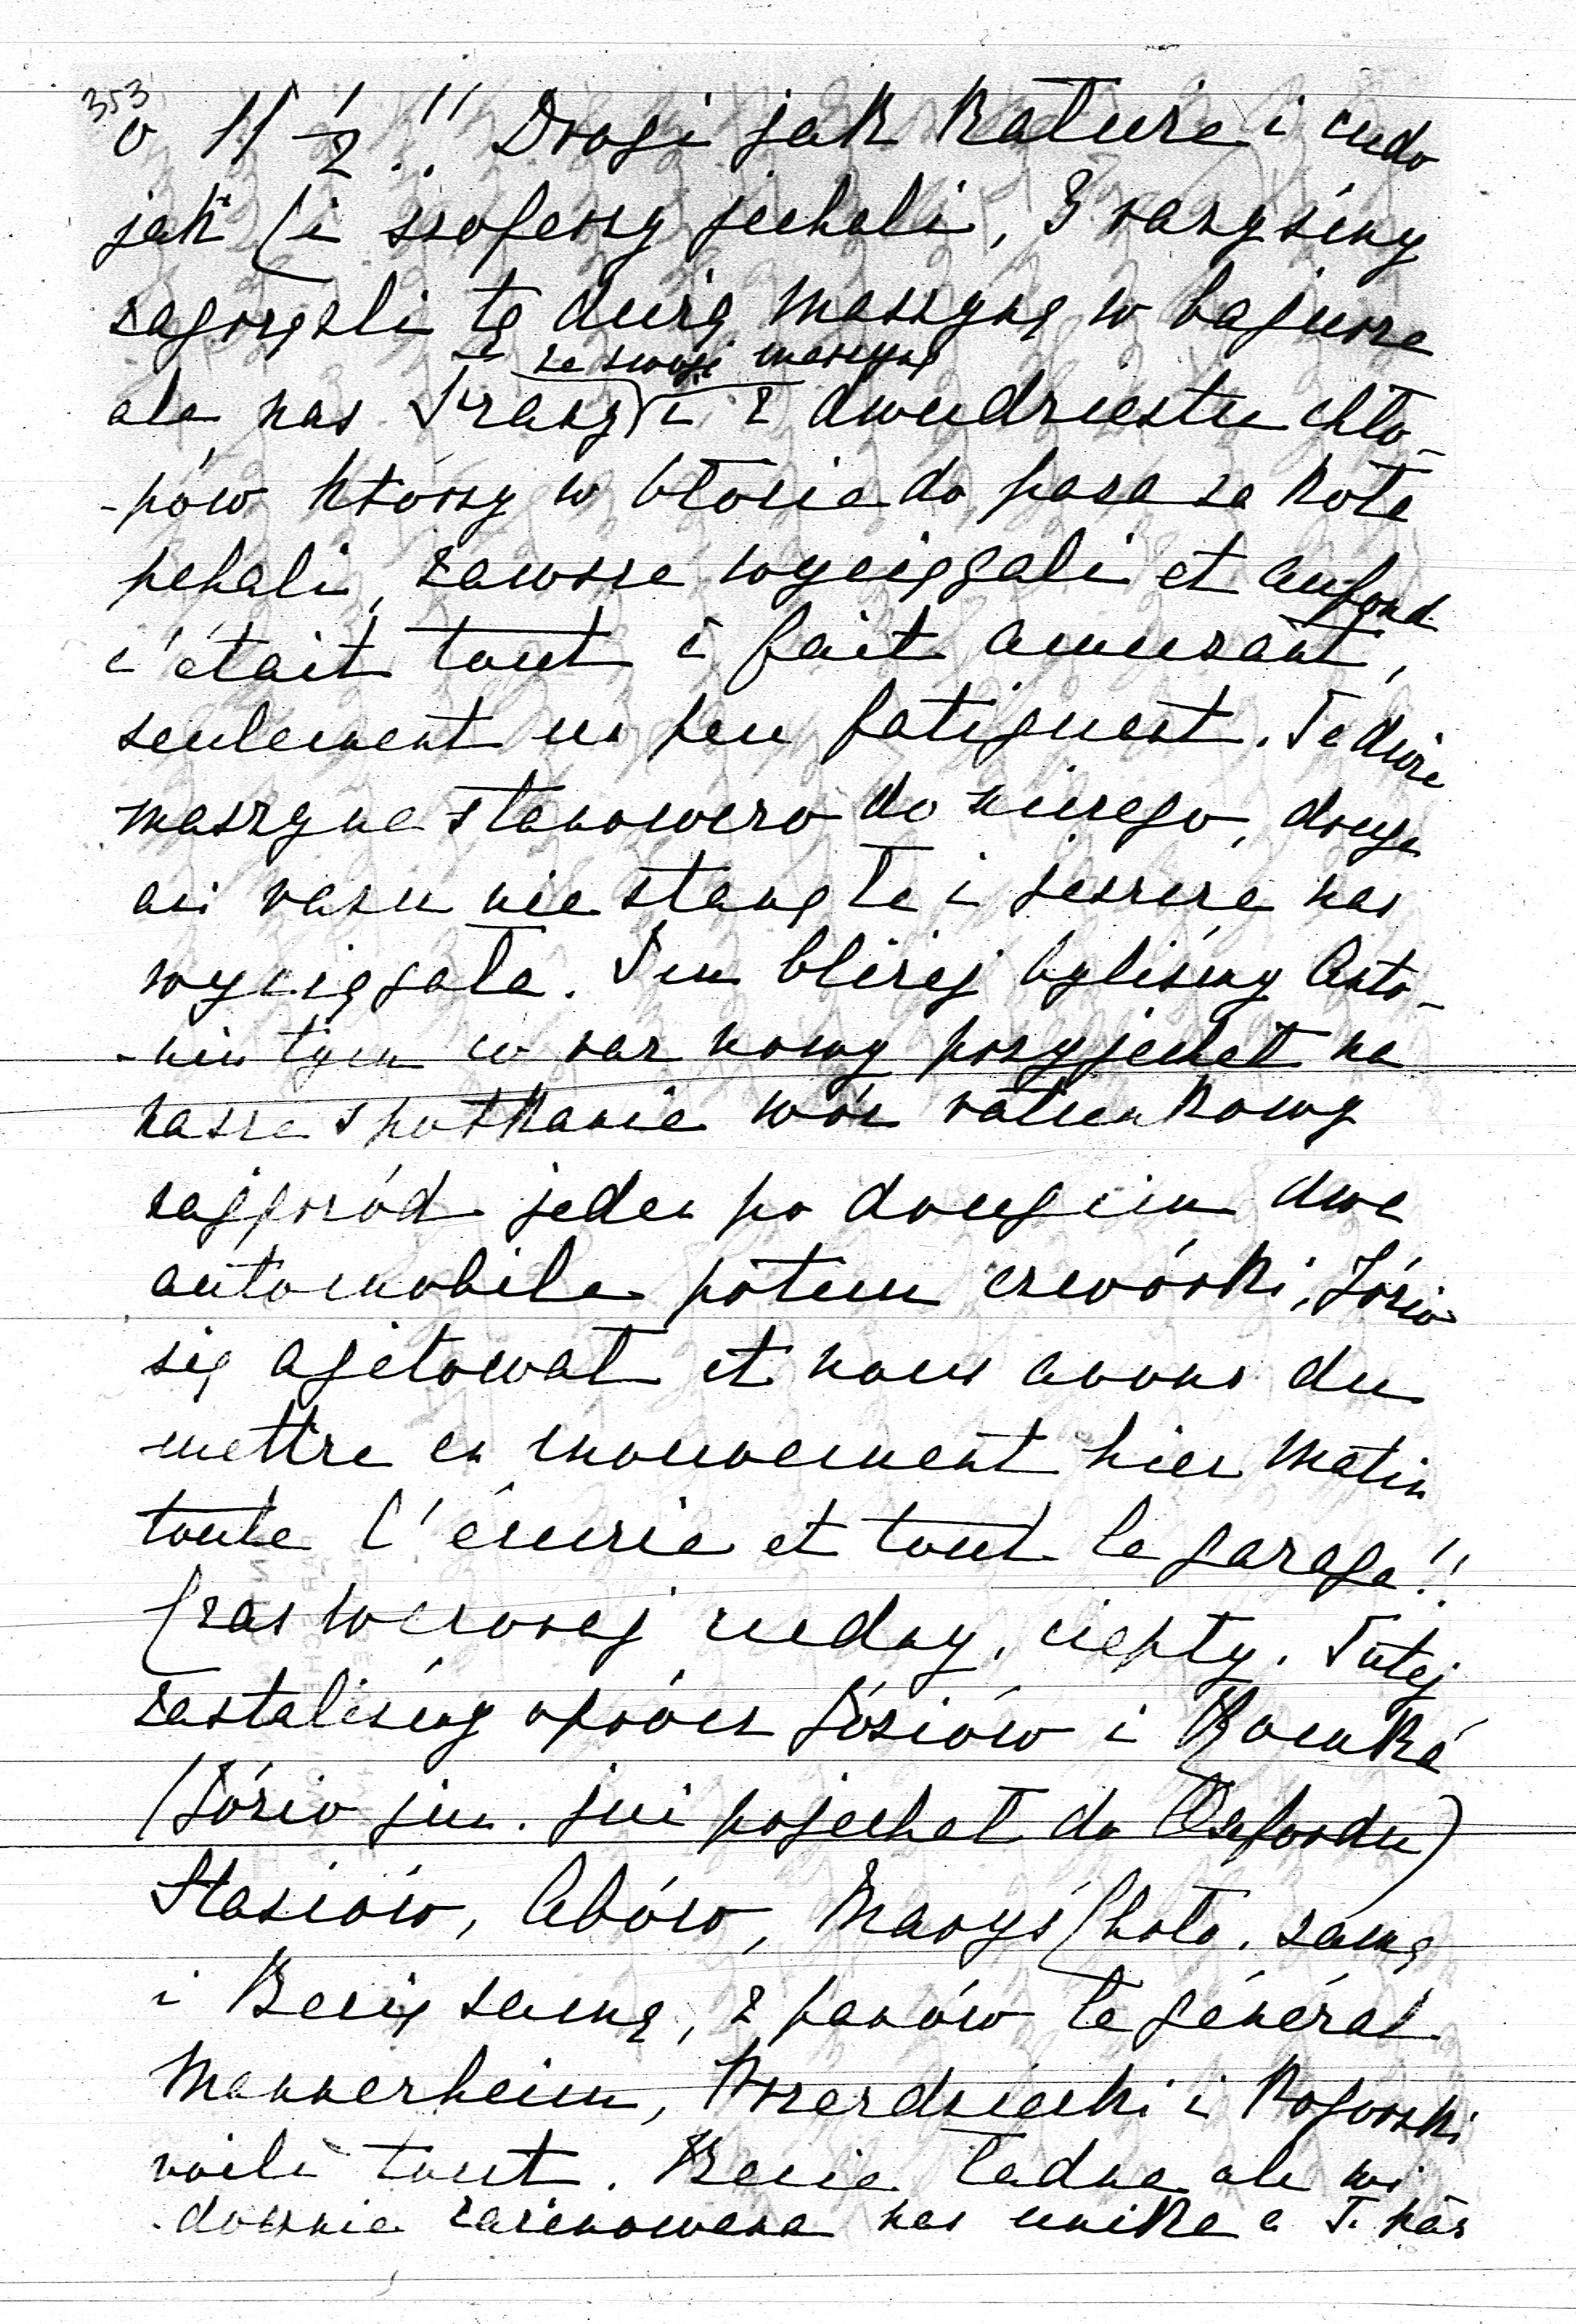 353
o 11 1/2 !! Drogi jak Kałuże i cudo
jak ci szoferzy jechali, 3 razyśmy
zagrzęźli tą dużą maszyną w bajurze
ale nas Franz i z dwudziestu chło-
ze swoją maszyną
-pów którzy w błocie do pasa za koła
pchali, zawsze wyciągali et au fond
c'était tout à fait amusant,
seulement un peu fatiguant. Ta duża
maszyna stanowczo do niczego, druga
ani razu nie stanęła i jeszcze nas
wyciągała. Im bliżej byliśmy Anto-
-nin tym co raz nowy przyjechał na
nasze spotkanie wóz ratunkowy
najprzód jeden po drugim dwa
automobile potem czwórki, Józio
się agitował et nous avons du
mettre en mouvement hier matin
toute l'écurie et tout le garage!!
Czas wczoraj cudny, ciepły. Tutaj
zastaliśmy oprócz Józiów i Romka
(Józio jun. już pojechał do Oxfordu)
Stasiów, Abów, Maryś Choło. samą
i Becię samą, z panów le général
Mannerheim, Rogorski
voilà tout. Becia ładna ale wi
-docznie zażenowana nas unika a